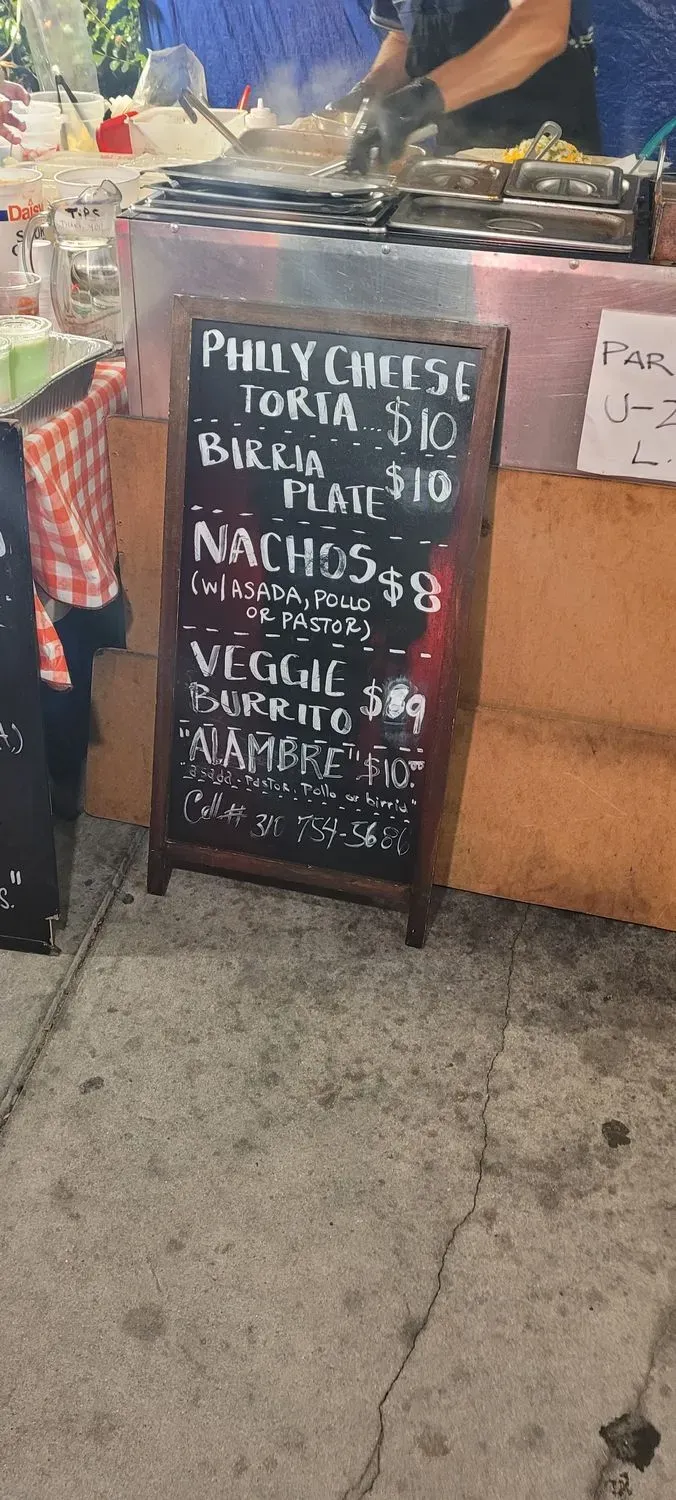 PHLLY CHEESE
TORTA... $10
BIRRIA
PLATE $10
NACHOS $8
(W/ASADA, POLLO
OR PASTOR)
VEGGIE
BURRITO $9
"ALAMBRE" $10.00
"asada - Pastor. Pollo or birria"
Call # 310 754-5686
Daisy
TIPS
PAR
U-Z
L.
A)
S."